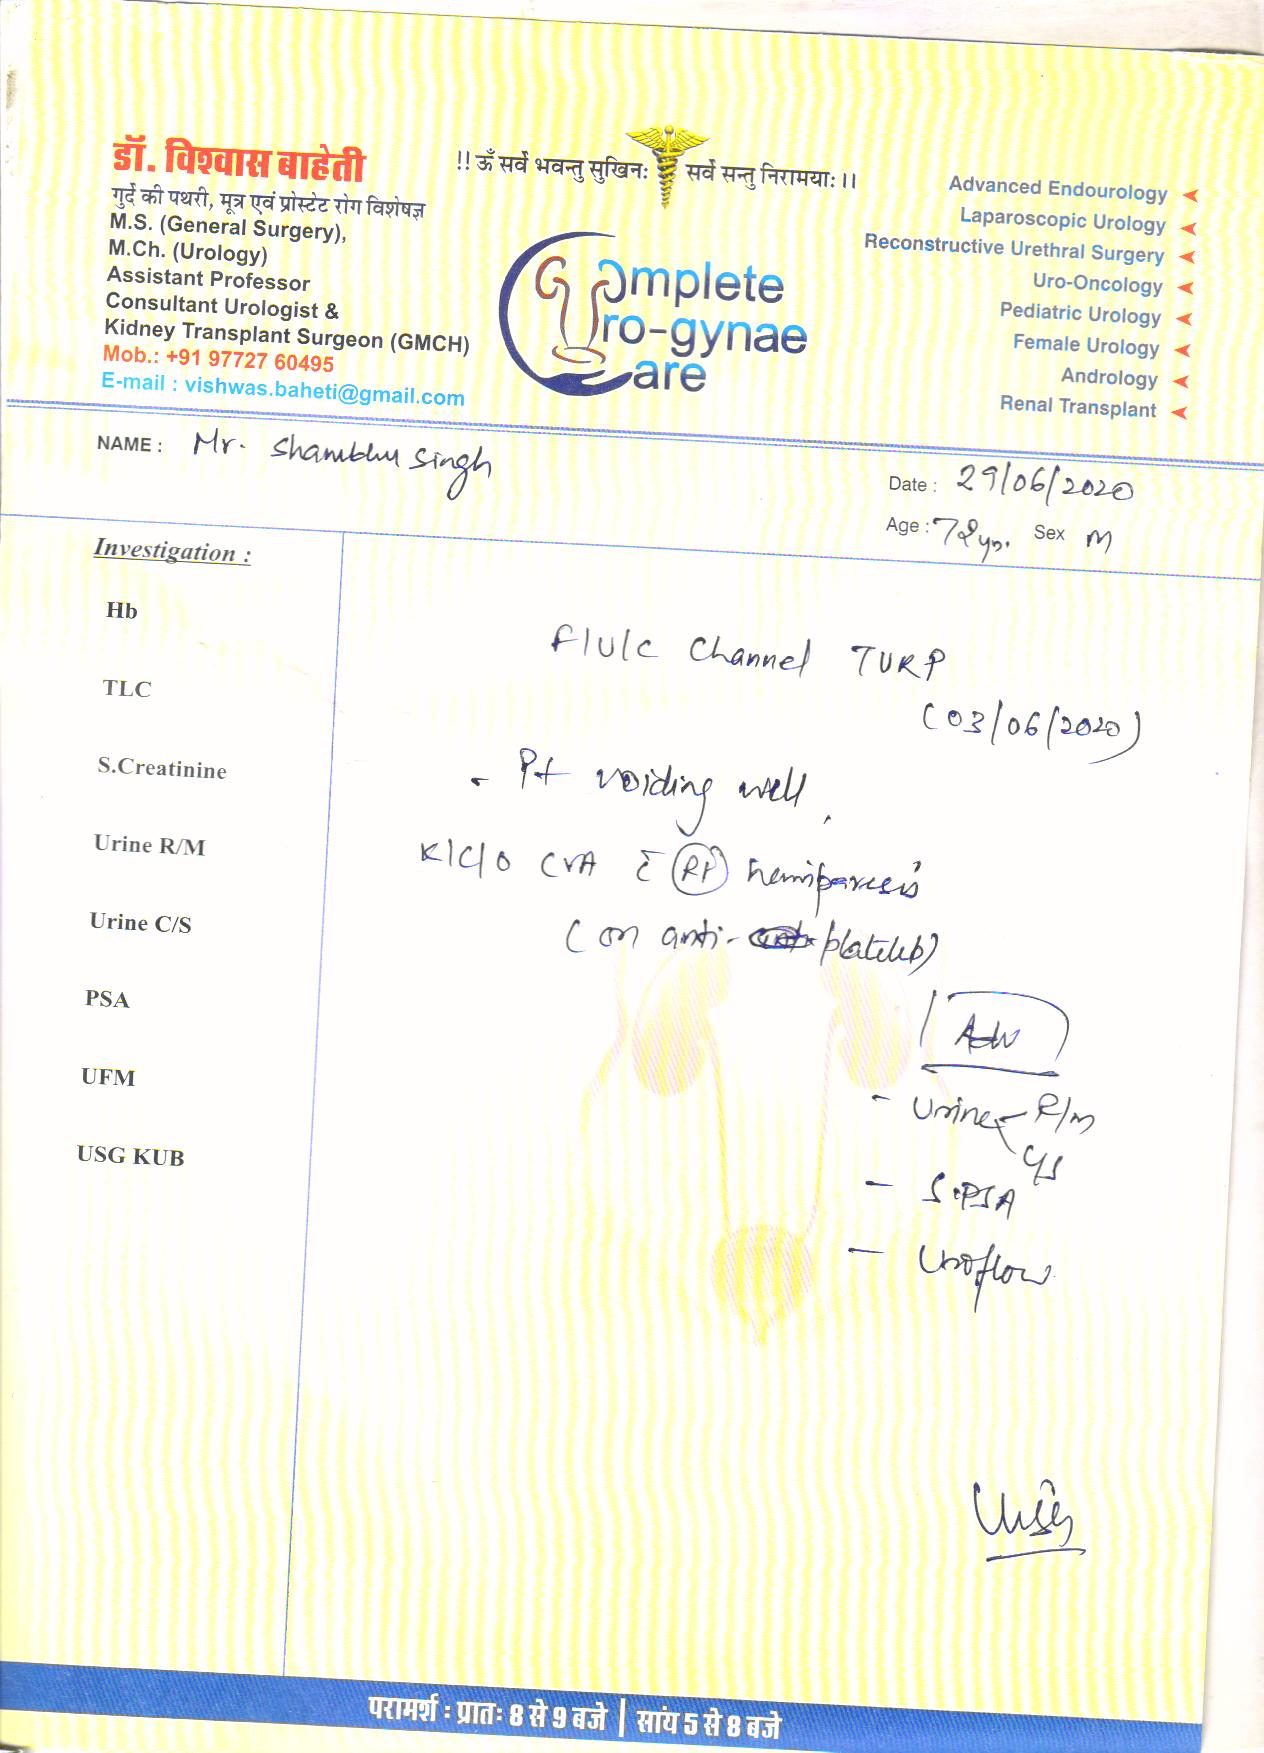 डॉ. विश्वास बाहेती
गुर्दे की पथरी, मूत्र एवं प्रोस्टेट रोग विशेषज्ञ
M.S. (General Surgery),
M.Ch. (Urology)
Assistant Professor
Consultant Urologist &
Kidney Transplant Surgeon (GMCH)
Mob.: +91 97727 60495
E-mail : vishwas.baheti@gmail.com
!! ॐ सर्वे भवन्तु सुखिनः सर्वे सन्तु निरामयाः ।।
Complete
Uro-gynae
Care
Advanced Endourology
Laparoscopic Urology
Reconstructive Urethral Surgery
Uro-Oncology
Pediatric Urology
Female Urology
Andrology
Renal Transplant
NAME : Mr. Shambhu Singh
Date : 29/06/2020
Age : 72 yr. Sex M
Investigation :
Hb
TLC
S.Creatinine
Urine R/M
Urine C/S
PSA
UFM
USG KUB
F/U/C Channel TURP
(03/06/2020)
- Pt voiding well,
K/C/O CVA c̄ Rt hemiparesis
(on anti-platelets)
Adv
- Urine R/M
C/S
- S.PSA
- Uroflow
परामर्श : प्रातः 8 से 9 बजे | सांय 5 से 8 बजे